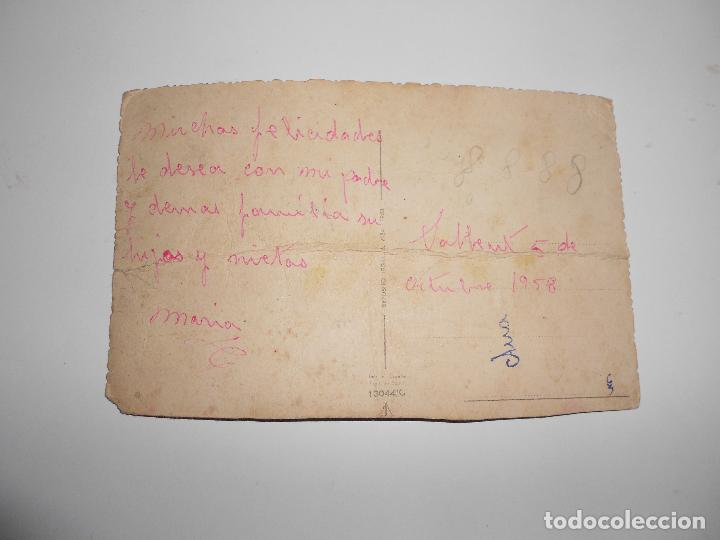 Muchas felicidades
te desea con mi padre
y demas familia su
hijas y nietas
Maria
8 8 8 8
5 de
octubre 1958
Ana
13044/C
todocoleccion.net